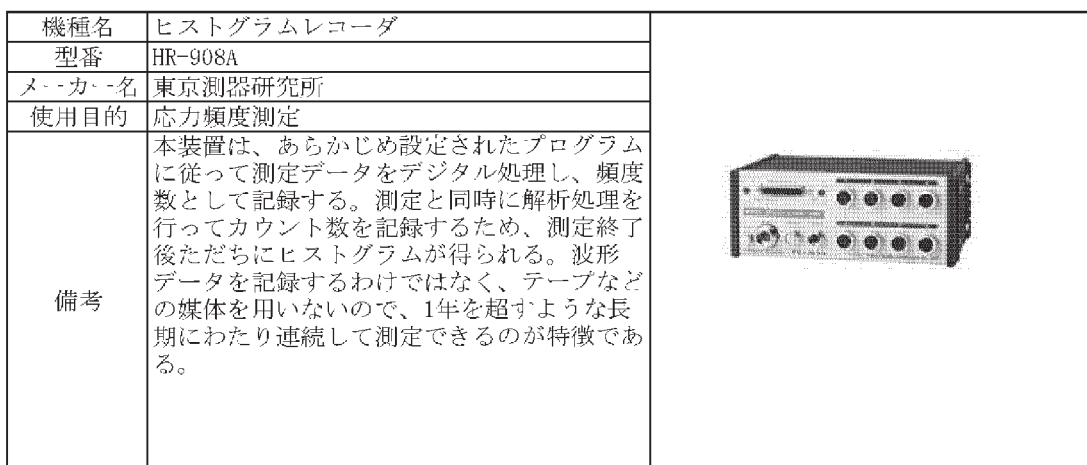 機種名 ヒストグラムレコーダ
型番 HR-908A
メーカー名 東京測器研究所
使用目的 応力頻度測定
備考
本装置は、あらかじめ設定されたプログラム
に従って測定データをデジタル処理し、頻度
数として記録する。測定と同時に解析処理を
行ってカウント数を記録するため、測定終了
後ただちにヒストグラムが得られる。波形
データを記録するわけではなく、テープなど
の媒体を用いないので、1年を超すような長
期にわたり連続して測定できるのが特徴であ
る。